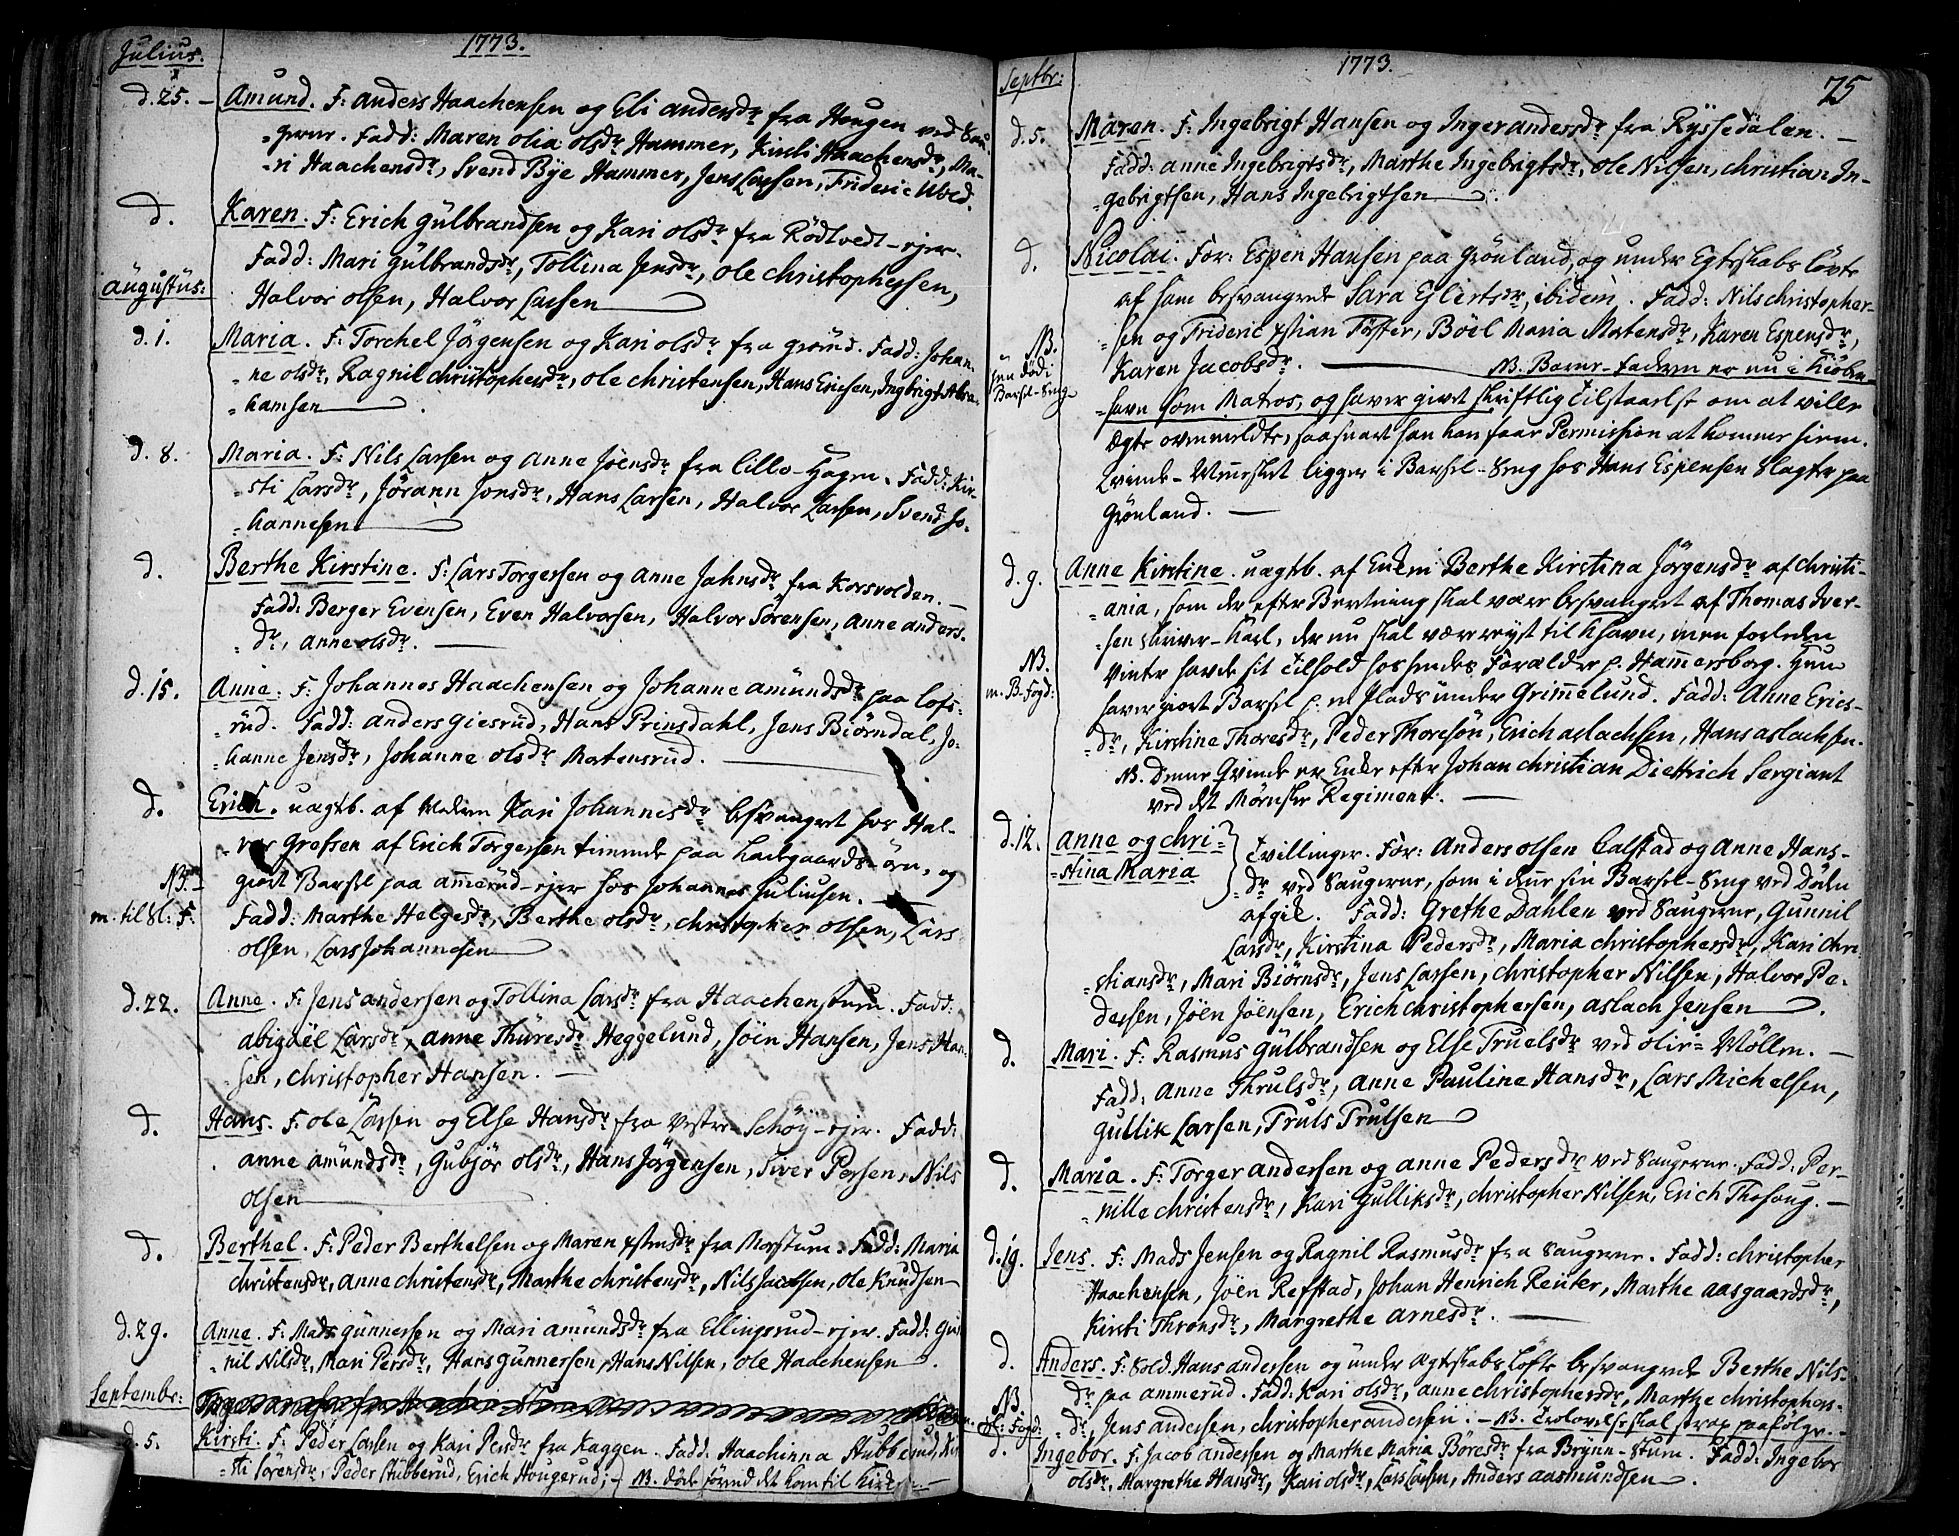 Julius.
1773.
d. 25. – Amund. F: Anders Haachensen og Eli Andersdr fra Hougen ved Sau-
-gerne. Fadd: Maren Olia Olsdr Hammer, Kirsti Haachensdr, Ma-
-ri Haachensdr, Svend Bye Hammer, Jens Larsen, Frideric Wed.
d. Karen. F: Erich Gülbrandsen og Kari Olsdr fra Rödtvedt-ejer.
Fadd: Mari Gülbrandsdr, Tollina Jensdr, Ole Christophersen,
Halvor Olsen, Halvor Larsen
Augustus:
d. 1. Maria. F: Torchel Jörgensen og Kari Olsdr fra Grorud. Fadd: Johan-
-ne Olsdr, Ragnil Christophersdr, Ole Christensen, Hans Ericsen, Ingbrigt Abra-
-hamsen
d. 8. Maria. F: Nils Larsen og Anne Jöensdr fra Lillo-Hagen. Fadd: Kir-
-sti Larsdr, Jörann Jonsdr, Hans Larsen, Halvor Larsen, Svend Jo-
-hannesen
d. Berthe Kirstine. F: Lars Torgersen og Anne Jahnsdr fra Korsvolden. –
Fadd: Berger Evensen, Even Halvorsen, Halvor Sörensen, Anne Anders-
-dr, Anne Olsdr. –
d. 15. Anne. F: Johannes Haachensen og Johanne Amündsdr paa Lofs-
-rüd. Fadd: Anders Giesrud, Hans Prinsdahl, Jens Biörndal, Jo-
-hanne Jensdr, Johanne Olsdr Mortensrüd.
d. Erich. uægtb. af Moderen Kari Johannesdr besvangret hos Hal-
-vor Grefsen af Erich Torgersen timende paa Ladegaards-öen, og
NB. giort Barsel paa Ammerüd-ejer hos Johannes Juliusen. –
m. til Sl: F. Fadd: Marthe Helgesdr, Berthe Olsdr, Christopher Olsen, Lars
Olsen, Lars Johannesen
d. 22. Anne. F: Jens Andersen og Tollina Larsdr fra Haachenstuen. Fadd:
Abigael Larsdr, Anne Thüresdr Heggelund, Jöen Hansen, Jens Han-
-sen, Christopher Hansen. –
d. Hans. F: Ole Larsen og Else Hansdr fra Vestre Schöy-ejer. Fadd:
Anne Amündsdr, Gubjör Olsdr, Hans Jörgensen, Siver Persen, Nils
Olsen
d. Berthel. F: Peder Berthelsen og Maren Xstensdr fra Morstuen. Fadd: Maria
Christensdr, Anne Christensdr, Marthe Christensdr, Nils Jacobsen, Ole Knudsen
d. 29. Anne. F: Mads Gunnersen og Mari Amündsdr fra Ellingsrud-ejer. Fadd: Gu-
-nil Nilsdr, Mari Persdr, Hans Gunnersen, Hans Nilsen, Ole Haachensen.
Septembr:
d. 5. Kirsti. F: Peder Larsen og Kari Persdr fra Kaggen. Fadd: Haachinna Stubberud, Kir-
-sti Sörensdr, Peder Stübberud, Erich Hougerud; – NB. döde förend det kom til Kirke. –
Septbr:
1773.
75
d. 5. Maren. F: Ingebrigt Hansen og Inger Andersdr fra Ryssedalen. –
Fadd: Anne Ingebrigtsdr, Marthe Ingebrigtsdr, Ole Nilsen, Christian In-
-gebrigtsen, Hans Ingebrigtsen
d. Nicolai. For: Espen Hansen paa Grönland, og under Egteskabs löfte
af ham besvangrede Sara Eylertsdr, ibidem. Fadd: Nils Christopher-
-sen og Frideric Xstian Töster, Böel Maria Mortensdr, Karen Espensdr,
NB. Karen Jacobsdr. – NB. Barne-faderen er nu i Kiöben-
hun död i
Barsel-Seng
-havn som Matros, og haver givet skriftlig tilstaaelse om at ville
ægte ovenmeldte, saasnart han kan faae Permission at komme hiem.
Qvinde-Mennesket ligger i Barsel-Seng hos Hans Espensen Slagter paa
Grönland. –
d. 9. Anne Kirstine. uægtb. af Enken Berthe Kirstina Jörgensdr af Christi-
-ania, som der efter Beretning skal være besvangret af Thomas Iver-
-sen skriver-Karl, der nu skal være reyst til Khavn, men forleden
NB. Vinter havde sit tilhold hos hendes Forældre p. Hammersborg. Hun
m. B. Fogd: haver giort Barsel p. en plads under Grimelund. Fadd: Anne Erics-
-dr, Kirstine Thoresdr, Peder Thoresön, Erich Aslachsen, Hans Aslachsen.
NB. Denne Qvinde er Enke efter Johan Christian Diettrich Sergiant
ved det Mörnske Regiment. –
d. 12. Anne og Chri-
-stina Maria
Tvillinger. For: Anders Olsen Calstad og Anne Hans-
-dr ved Saugerne, som i denne sin Barsel-Seng ved Döden
afgik. Fadd: Grethe Dahlen ved Saugerne, Gunnil
Larsdr, Kirstina Pedersdr, Maria Christophersdr, Kari Chri-
-stiansdr, Mari Biörnsdr, Jens Larsen, Christopher Nilsen, Halvor Pe-
dersen, Jöen Jöensen, Erich Christophersen, Aslach Jensen.
d. Mari. F: Rasmus Gülbrandsen og Else Truelsdr ved Olie-Möllen. –
Fadd: Anne Thrulsdr, Anne Pauline Hansdr, Lars Michelsen,
Gullik Larsen, Truls Trulsen
d. Maria. F: Torger Andersen og Anne Pedersdr ved Saugerne. Fadd: Per-
-nille Christensdr, Kari Gulliksdr, Christopher Nilsen, Erich Thosoug. –
d. 19. Jens. F: Mads Jensen og Ragnil Rasmusdr fra Saugerne. Fadd: Christopher
Haachensen, Jöen Refstad, Johan Henrich Reuter, Marthe Aasgaardsdr,
Kirsti Thronsdr, Margrethe Arnesdr. –
d. Anders. F: Sold. Hans Andersen og under ægteskabs löfte besvangrede Berthe Nils-
NB. dr paa Ammerud. Fadd: Kari Olsdr, Anne Christophersdr, Marthe Christophers-
Fogd: -dr, Jens Andersen, Christopher Andersen. – NB. Trolovelse skal strax paafölge. –
d. Ingebor. F: Jacob Andersen og Marthe Maria Böresdr fra Brynn-Stuen. Fadd: Ingebor
Olsdr, Margrethe Hansdr, Kari Olsdr, Lars Larsen, Anders Aasmundsen.